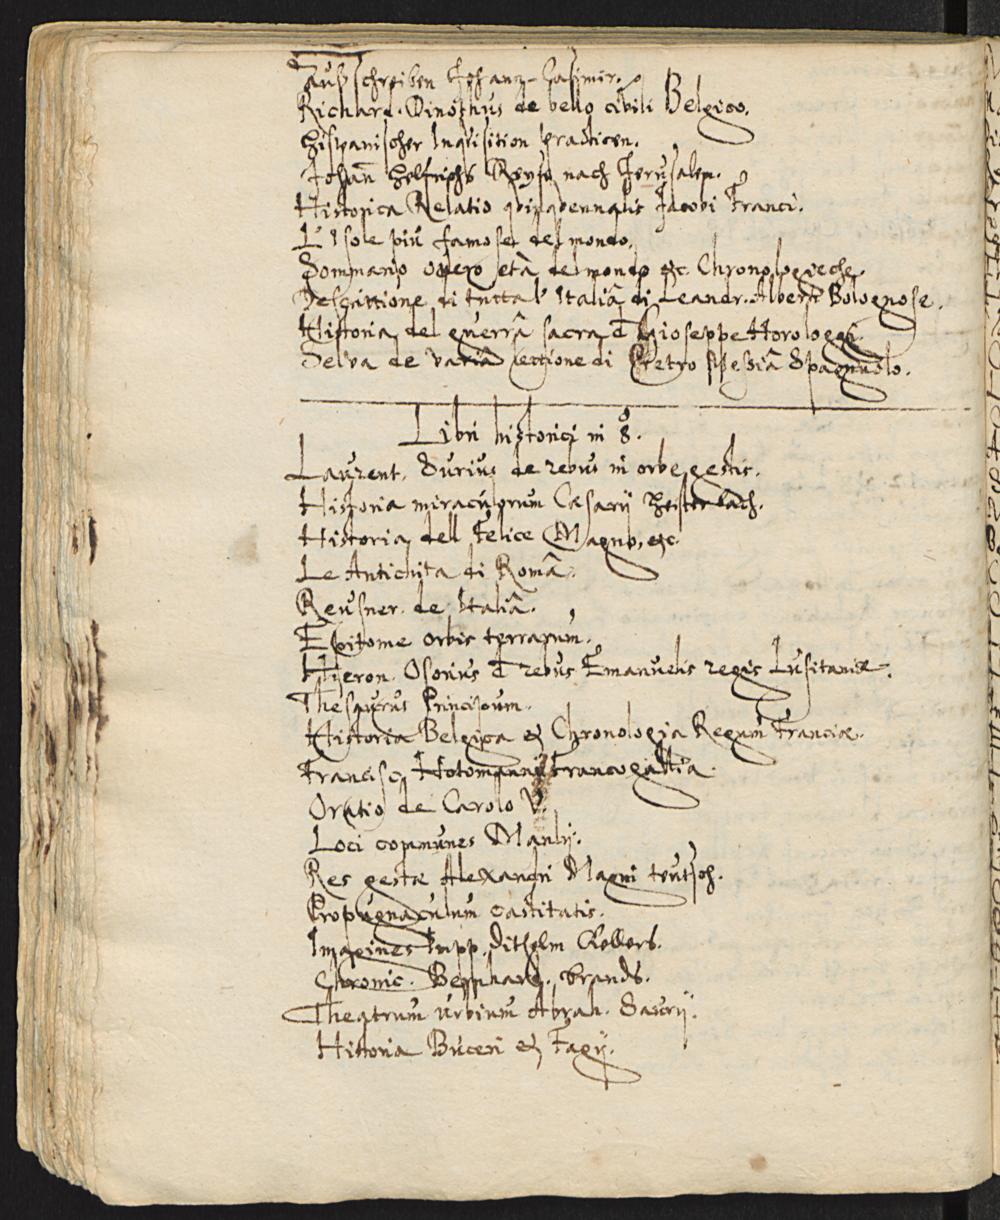 Außschreiben Johanz-Casimir.
Richard. Dinothus de bello civili Belgico.
Hispanischer Inquisition practicen.
Johan̄ Helfrichs Reyse nach Jerusalem.
Historica Relatio quinquennalis Jacobi Franci.
L'Isole piu famose del mondo.
Sommario overo età del mondo &c. Chronologiche.
Descrittione di tutta l'Italia di Leandr. Alberti Bolognose.
Historia del guerra sacra d Gioseppe Horologgi.
Selva de varia lettione di Pietro Messia Spagnuolo.
Libri historici in 8.
Laurent. Surius de rebus in orbe gestis.
Historia miraculorum Cæsarij Heisterbach.
Historia dell Felice Magno, &c.
Le Antichita di Roma.
Reusner. de Italia.
Epitome orbis terrarum.
Hieron. Osorius d rebus Emanuelis regis Lusitaniæ.
Thesaurus Principum.
Historia Belgica & Chronologia Regum Franciæ.
Francisc. Hotomannij Francogallia.
Oratio de Carolo V.
Loci communes Manlij.
Res gestæ Alexandri Magni teutsch.
Propugnaculum castitatis.
Imagines Impp. Dithelm Kellers.
Chronic. Bernhard. Brands.
Theatrum urbium Abrah. Saurij.
Historia Buceri & Fagij.